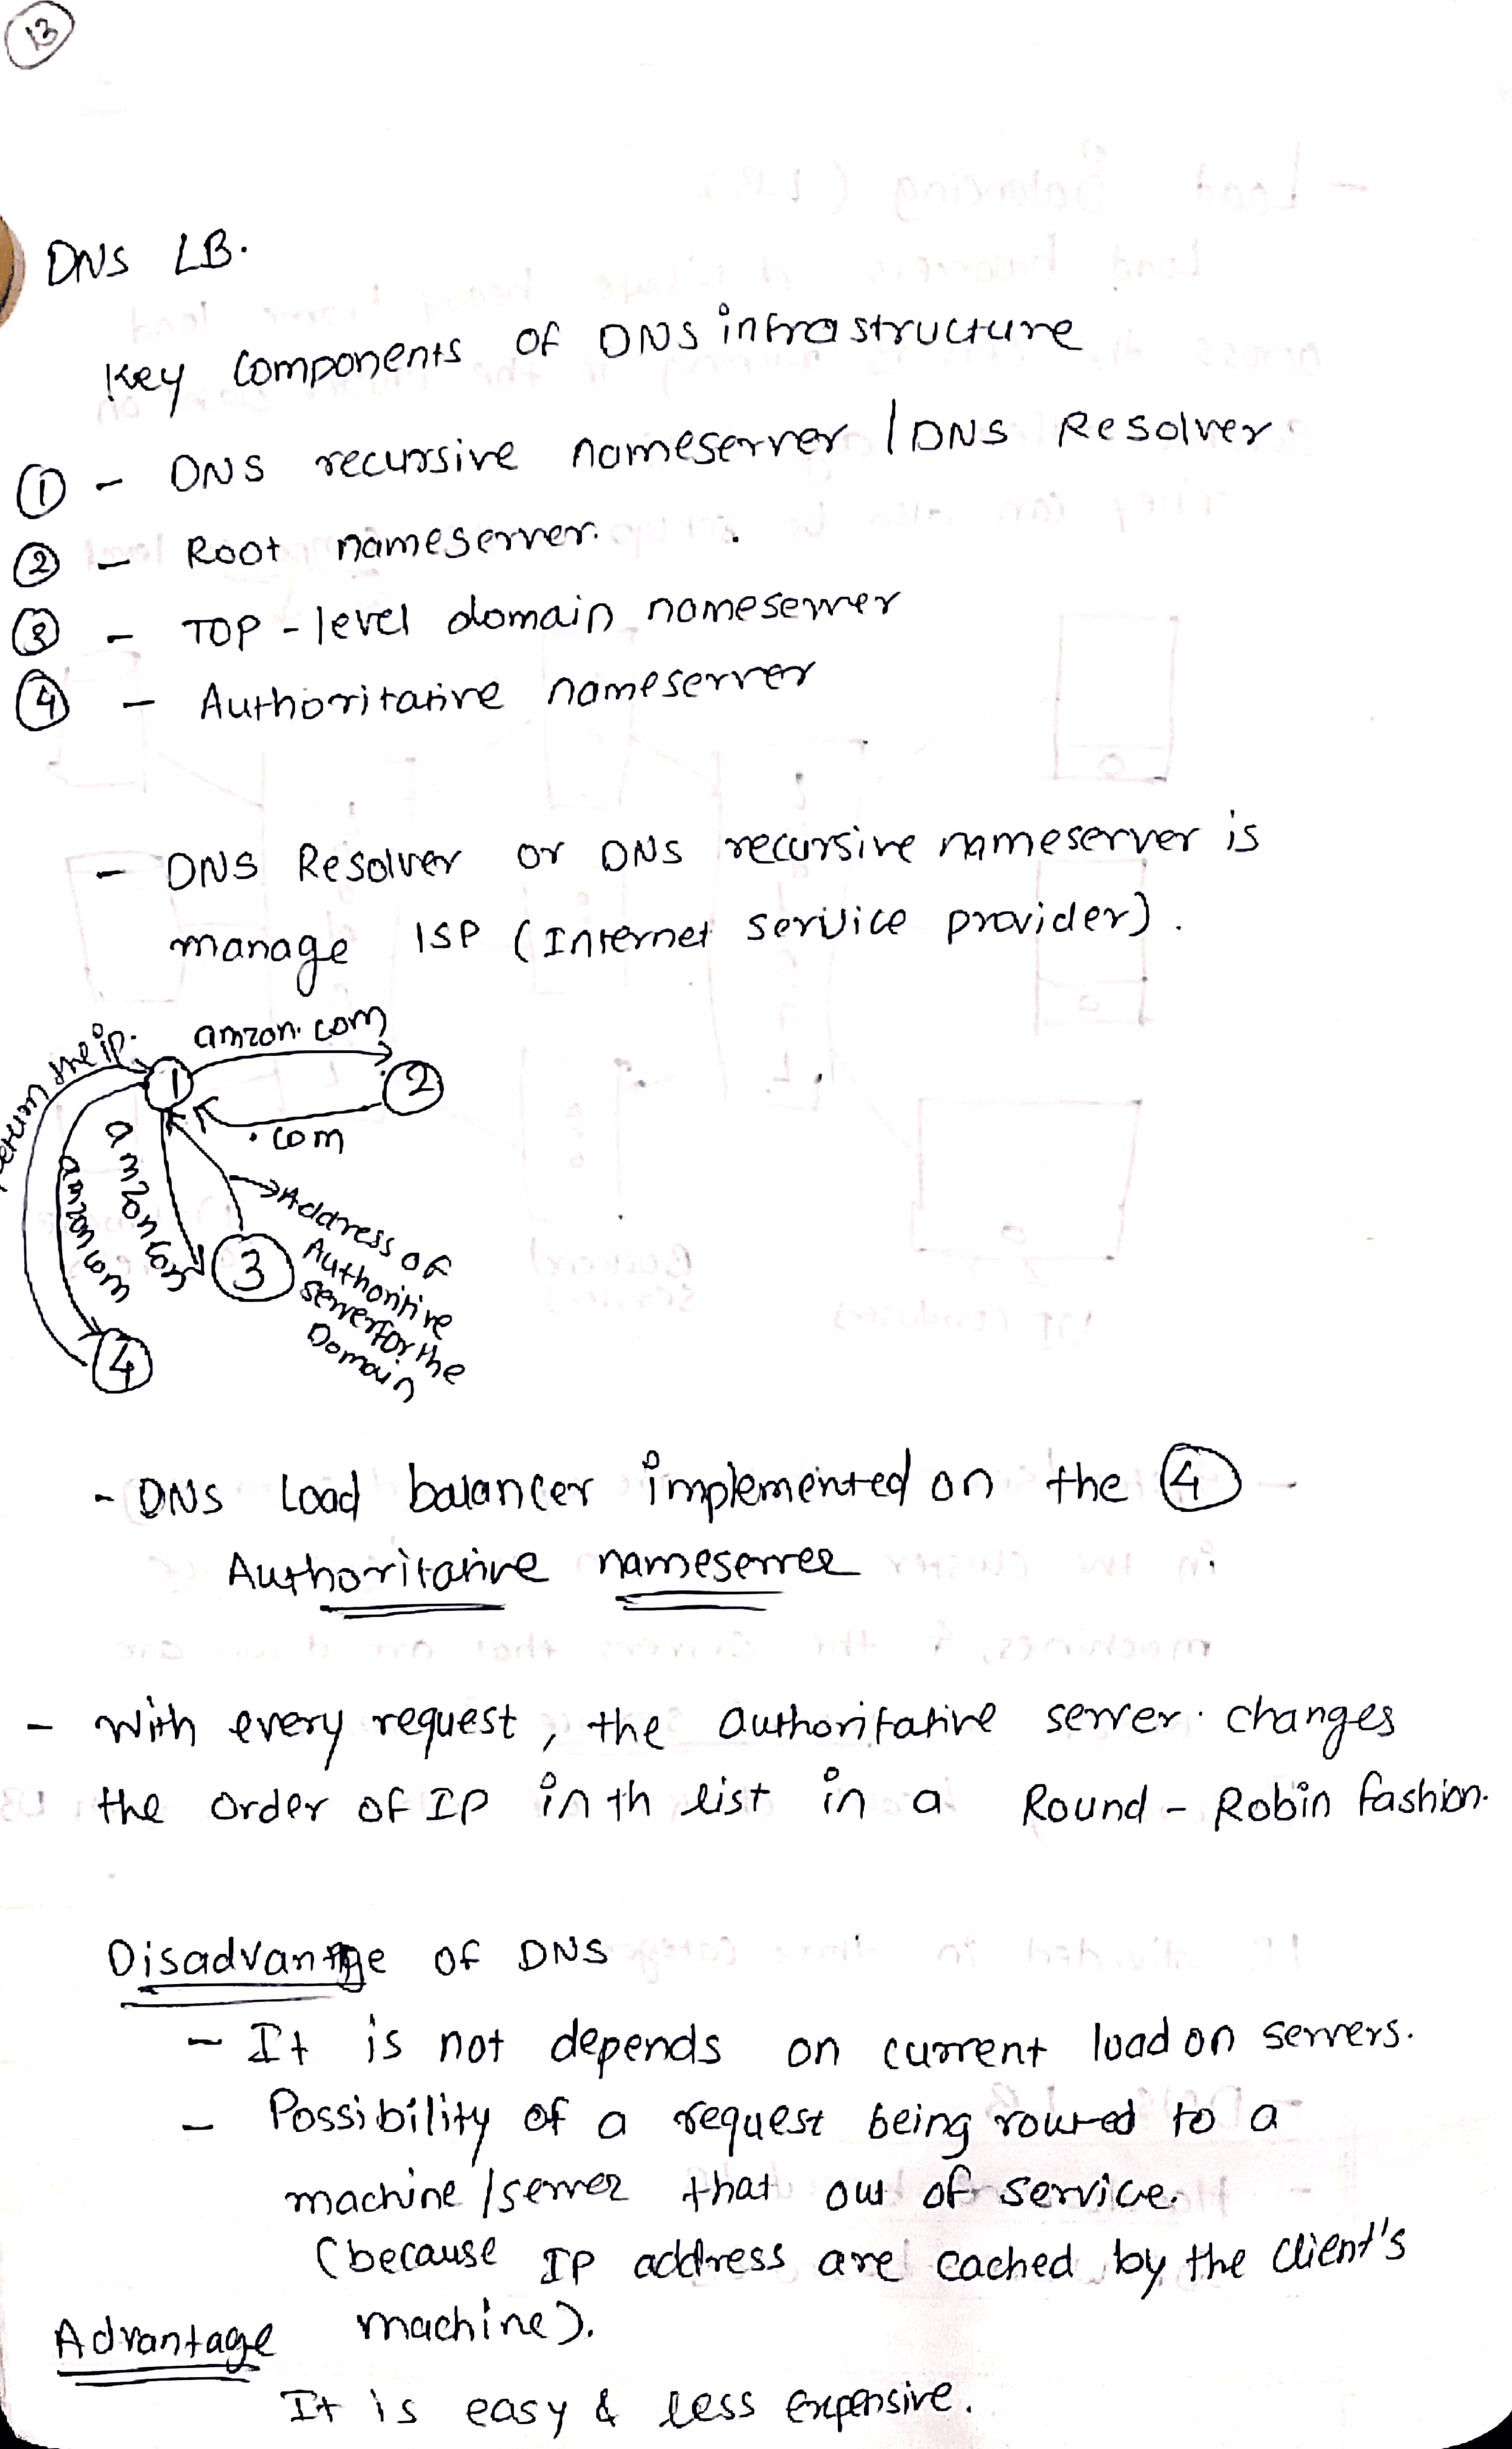 13
DNS LB.
Key Components of DNS infrastructure
① - DNS recurssive nameserver / DNS Resolver
② - Root nameserver.
③ - TOP - level domain nameserver
④ - Authoritative nameserver
- DNS Resolver or DNS recursive nameserver is
manage ISP (Internet Service provider).
return the ip.
amzon.com
1
2
.com
amzon.com
amzon.com
Address of
Authoritive
server for the
Domain
3
4
- DNS Load balancer implemented on the ④
Authoritative nameserver
- With every request, the authoritative server changes
the order of IP in th list in a Round - Robin fashion.
Disadvantage of DNS
- It is not depends on current load on servers.
- Possibility of a request being routed to a
machine / server that out of service.
(because IP address are cached by the client's
machine).
Advantage
It is easy & less expensive.